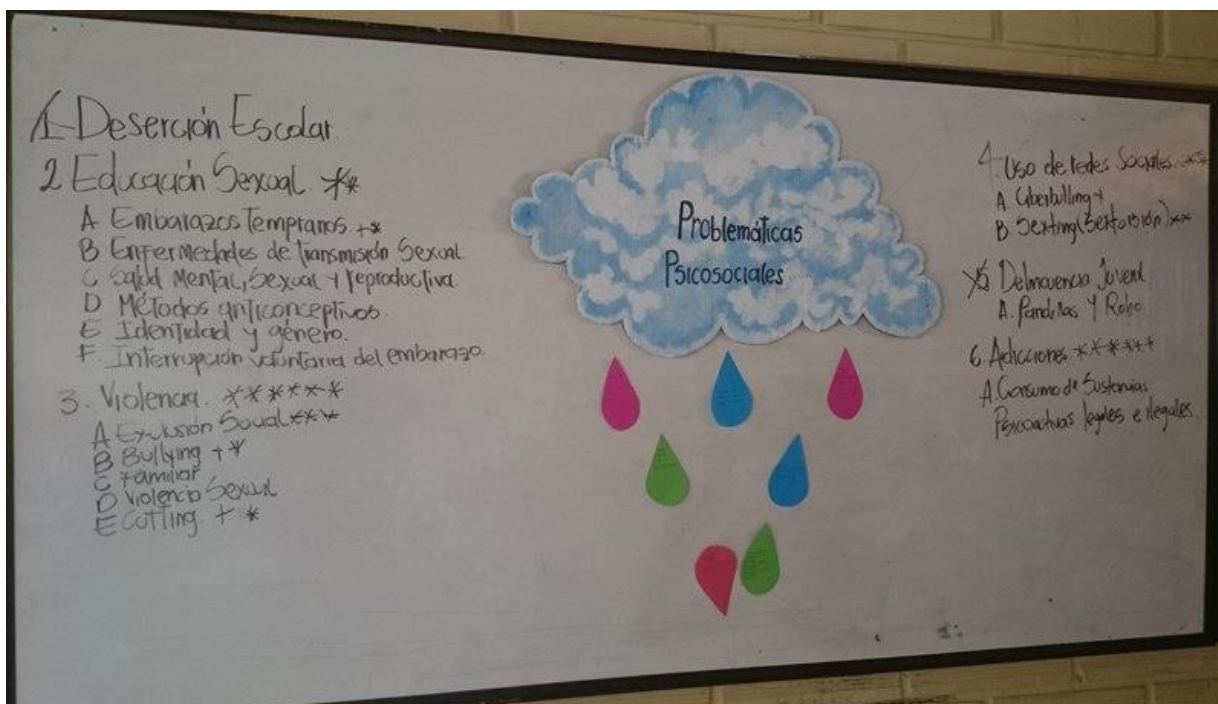 1 Deserción Escolar
2 Educación Sexual **
A Embarazos Tempranos +*
B Enfermedades de Transmisión Sexual
C Salud Mental, Sexual y reproductiva.
D Métodos anticonceptivos.
E Identidad y género.
F. Interrupción voluntaria del embarazo
3. Violencia. ******
A Exclusión Social ***
B Bullying +*
C Familiar
D Violencia Sexual
E Cutting + *
Problemáticas
Psicosociales
4. Uso de redes Sociales
A Cyberbulling +
B. Sexting (Sextorsión) **
5 Delincuencia Juvenil
A. Pandillas Y Robo
6. Adicciones ******
A. Consumo de Sustancias
Psicoactivas legales e ilegales